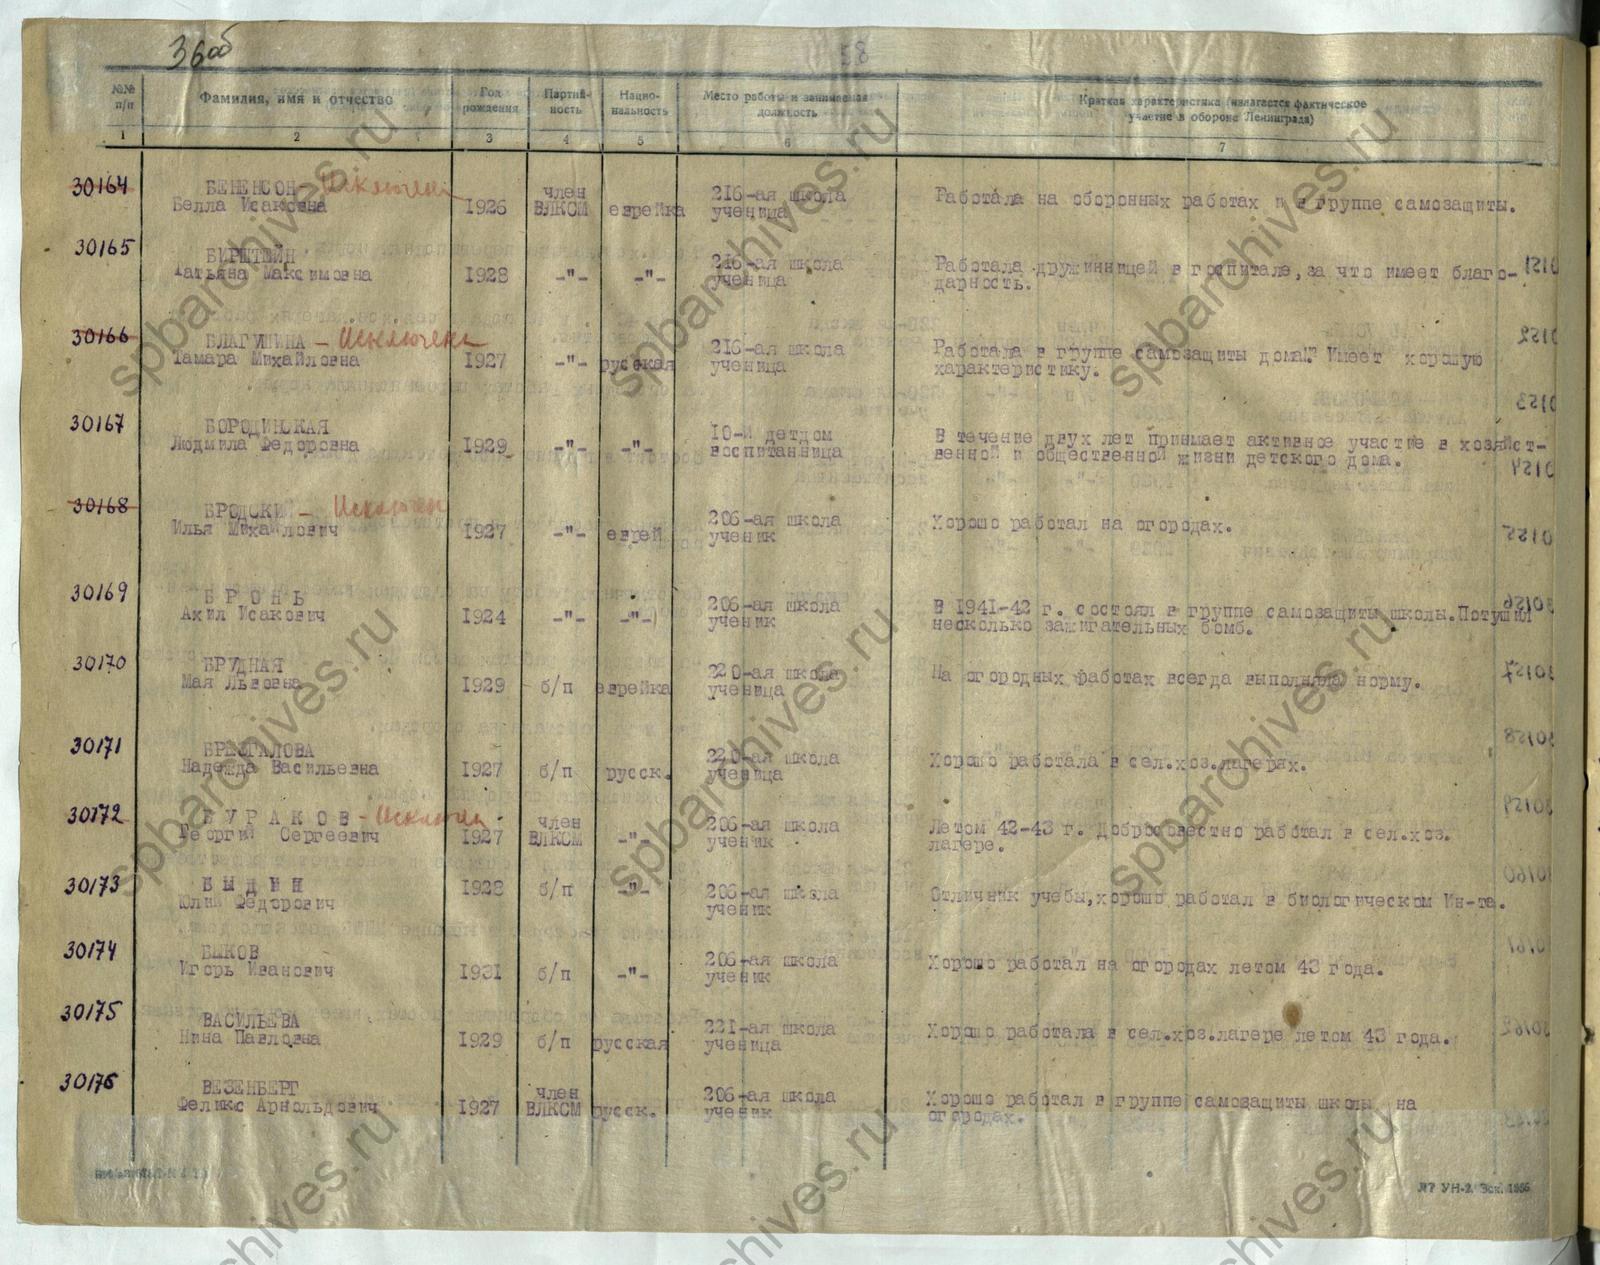 36 об
58
№№ п/п Фамилия, имя и отчество Год рождения Партий-ность Нацио-нальность Место работы и занимаемая должность Краткая характеристика (излагается фактическое участие в обороне Ленинграда)
1 2 3 4 5 6 7
30164 БЕНЕНСОН - Исключен член 216-ая школа
Белла Исаковна 1926 ВЛКСМ еврейка ученица Работала на оборонных работах и в группе самозащиты.
30165 БИРШТЕЙН 216-ая школа
Татьяна Максимовна 1928 -"- -"- ученица Работала дружинницей в госпитале, за что имеет благо-
дарность.
30166 БЛАГУШИНА - Исключена 216-ая школа
Тамара Михайловна 1927 -"- русская ученица Работала в группе самозащиты дома. Имеет хорошую
характеристику.
30167 БОРОДИНСКАЯ 10-й детдом
Людмила Федоровна 1929 -"- -"- воспитанница В течение двух лет принимает активное участие в хозяйст-
венной и общественной жизни детского дома.
30168 БРОДСКИЙ - Исключен 206-ая школа
Илья Михайлович 1927 -"- еврей ученик Хорошо работал на огородах.
30169 БРОНЬ 206-ая школа
Ахил Исакович 1924 -"- -"- ученик В 1941-42 г. состоял в группе самозащиты школы. Потушил
несколько зажигательных бомб.
30170 БРУДНАЯ 220-ая школа
Мая Львовна 1929 б/п еврейка ученица На огородных работах всегда выполняла норму.
30171 БРЕЗГАЛОВА 220-ая школа
Надежда Васильевна 1927 б/п русск. ученица Хорошо работала в сел.хоз.лагерях.
30172 БУРАКОВ - Исключен член 206-ая школа
Георгий Сергеевич 1927 ВЛКСМ -"- ученик Летом 42-43 г. Добросовестно работал в сел.хоз.
лагере.
30173 БЫДИН 1928 б/п -"- 206-ая школа
Юлий Федорович ученик Отличник учебы, хорошо работал в биологическом Ин-те.
30174 БЫКОВ 206-ая школа
Игорь Иванович 1931 б/п -"- ученик Хорошо работал на огородах летом 43 года.
30175 ВАСИЛЬЕВА 221-ая школа
Нина Павловна 1929 б/п русская ученица Хорошо работала в сел.хоз.лагере летом 43 года.
30176 ВЕЗЕНБЕРГ член 206-ая школа
Феликс Арнольдович 1927 ВЛКСМ русск. ученик Хорошо работал в группе самозащиты школы на
огородах.
spbarchives.ru
spbarchives.ru
spbarchives.ru
spbarchives.ru
spbarchives.ru
spbarchives.ru